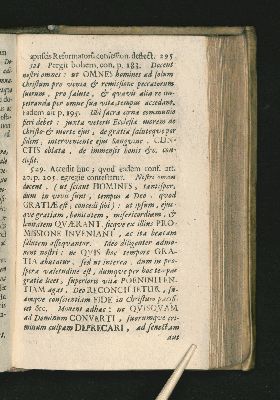 apostasis Reformatorū confession. deflect. 295
528 Pergit bohem. con. p. 183. Docent
nostri omnes: ut OMNES homines ad solum
Christum pro venia & remissione peccatorum
suorum, pro salute, & quavis alia re im-
petranda per omne suæ vitæ tempus accedant.
eadem ait p. 195. Ubi sacra cœna communio
fieri debet: juxta veteris Ecclesiæ morem de
Christo & morte ejus, de gratia salutequeper
filium, interveniente ejus sanguine, CUN-
CTIS oblata, de immensis bonis &c. con-
529. Accessit huic; quod eadem conf. art.
20. p. 205. egregiè confitetur. Nostri omnes
docent, (ut sciant HOMINES, tantisper,
dum in vivis sunt, tempus à Deo, quod
GRATIÆ est, concessi sibi): ut ipsum, ejus-
que gratiam, bonitatem, misericordiam, &
lenitatem QUÆRANT. sicque ex illius PRO-
MISSIONE INVENIANT, ac ita beatam
salutem assequantur. Ideo diligenter admo-
nent nostri: ne QUIS hoc tempore GRA-
TIÆ abutatur, sed ut interea, dum in pro-
spera valetudine est, dumque per hoc tempus
gratiæ licet, superioris vitæ POENITEN-
TIAM agat, Deo RECONCILIETUR, su-
amque conscientiam FIDE in Christum
et &c. Monent adhuc: ut QUISQUAM
ad Dominum CONVERTI, suorumque cri-
minum culpam DEPRECARI, ad senectam
aut